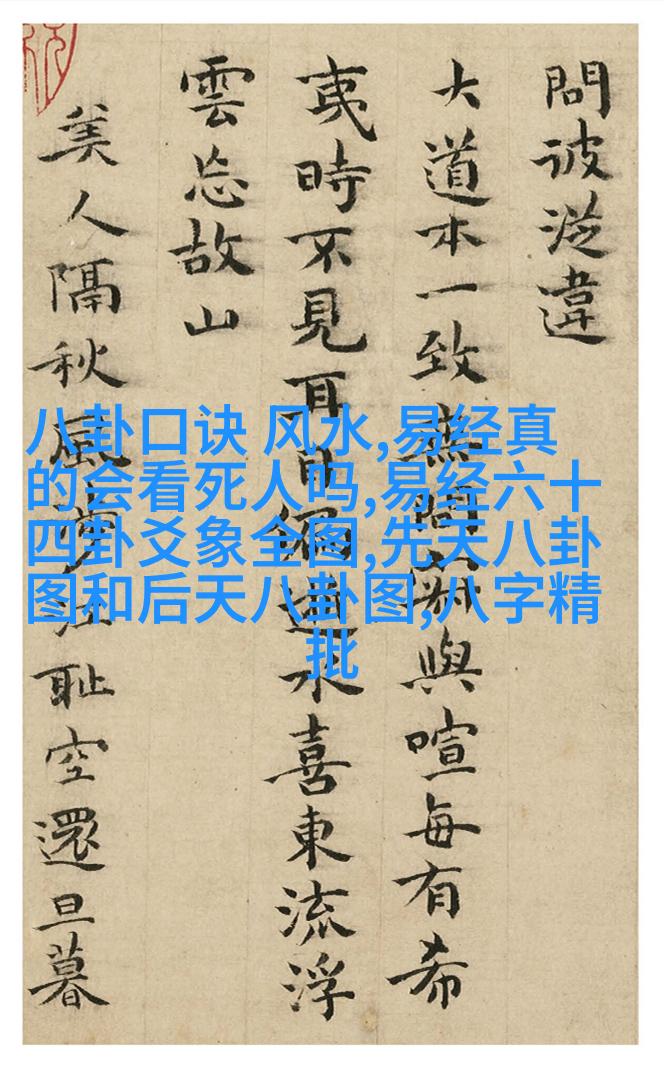 問彼從違
大道本一致無問寂與喧每有希
夷時不見耳目連水喜東流浮
雲忘故山
美人隔秋風江耻空還旦暮
八卦口诀 风水,易经真
的会看死人吗,易经六十
四卦爻象全图,先天八卦
图和后天八卦图,八字精
批